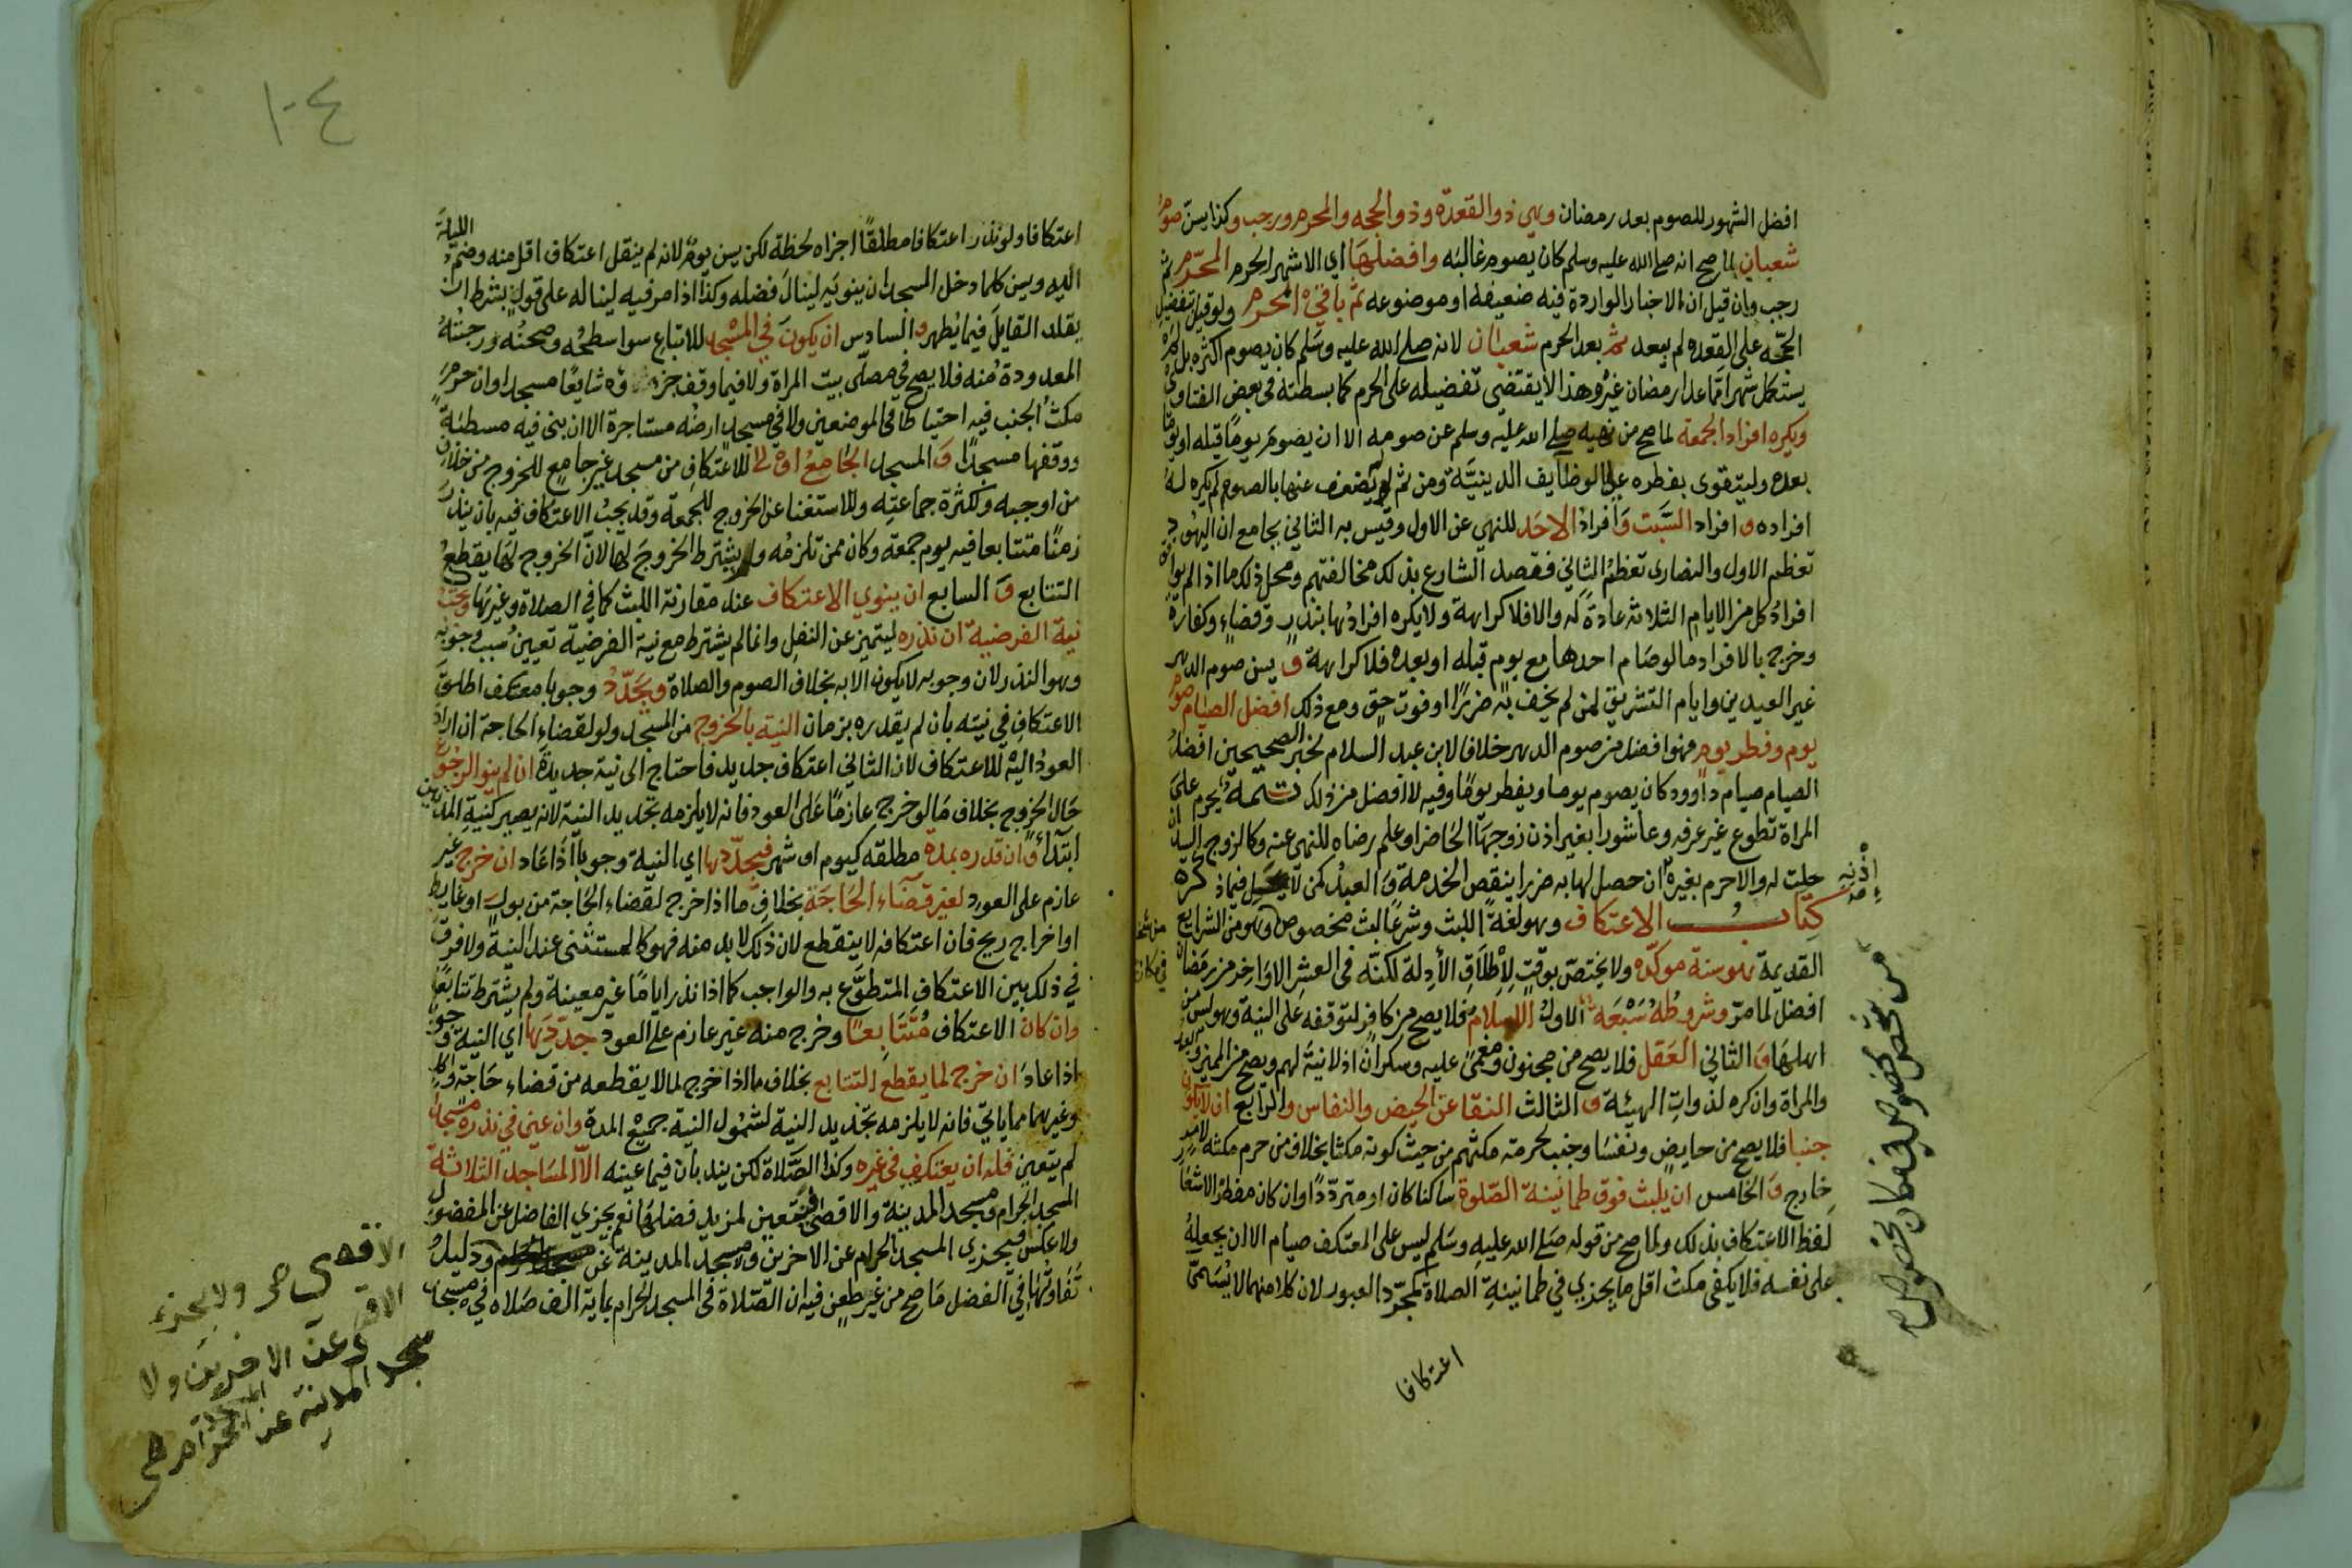 افضل الشهور للصوم بعد رمضان وهي ذو القعدة وذو الحجه والمحرم ورجب وكذا يسن صوم
شعبان لما صح انه صلى الله عليه وسلم كان يصوم غالبه وافضلها اي الاشهر الحرم المحرم ثم
رجب وان قيل ان الاخبار الواردة فيه ضعيفة او موضوعه ثم باقي الحرم ولو قيل بتفضيل
الحجه على القعده لم يبعد ثم بعد الحرم شعبان لانه صلى الله عليه وسلم كان يصوم اكثره بل لم يره
يستكمل شهرا ما عدا رمضان غيره وهذا لا يقتضي تفضيله على الحرم كما بسطته في بعض الفتاوى
ويكره افراد الجمعة لما صح من نهيه صلى الله عليه وسلم عن صومه الا ان يصوم يوما قبله او يوما
بعده وليتقوى بفطره على الوظايف الدينية ومن ثم لو لم يضعف عنها بالصوم لم يكره له
افراده و افراد السبت وافراد الاحد للنهي عن الاول وقيس به الثاني بجامع ان اليهود
تعظم الاول والنصارى تعظم الثاني فقصد الشارع بذلك مخالفتهم ومحل ذلك ما اذا لم يوافق
افراد كل من الايام الثلاثه عادة له والا فلا كراهة ولا يكره افرادها بنذر وقضاء وكفارة
وخرج بالافراد ما لو صام احدها مع يوم قبله او بعده فلا كراهة و يسن صوم الدهر
غير العيدين وايام التشريق لمن لم يخف به ضررا او فوت حق ومع ذلك افضل الصيام صوم
يوم وفطر يوم فهو افضل من صوم الدهر خلافا لابن عبد السلام لخبر الصحيحين افضل
الصيام صيام داوود كان يصوم يوما ويفطر يوما وفيه لا افضل من ذلك تتمة يحرم على
المراة تطوع غير عرفه وعاشورا بغير اذن زوجها الحاضر او علم رضاه للنهي عنه وكالزوج السيد ان
حلت له والا حرم بغير اذنه ان حصل لها به ضرر اينقص الخدمة والعبد كمن لا تحل فيما ذكره
كتاب الاعتكاف وهو لغة اللبث وشرعا لبث مخصوص وهو من الشرايع
القديمة هو سنة موكده ولا يختص بوقت لاطلاق الأدلة لكنه في العشر الاواخر من رمضان
افضل لما مر وشروطه سبعه الاول الاسلام فلا يصح من كافر لتوقفه على النية وهو ليس من
اهلها و الثاني العقل فلا يصح من مجنون ومغمى عليه وسكران اذ لا نية لهم ويصح من المميز والعبد
والمراة وان كره لذوات الهيئة و الثالث النقا عن الحيض والنفاس والرابع ان لا يكون
جنبا فلا يصح من حايض ونفسا وجنب لحرمة مكثهم من حيث كونه مكثا بخلاف من حرم مكثه لامر
خارج و الخامس ان يلبث فوق طمانينة الصلوة ساكنا كان او مترددا وان كان مفطرا لاشعار
لفظ الاعتكاف بذلك ولما صح من قوله صلى الله عليه وسلم ليس على المعتكف صيام الا ان يجعله
على نفسه فلا يكفي مكث اقل ما يجزي في طمانينة الصلاة كمجرد العبور لان كلا منهما لا يسمى
اعتكافا
من شخص مخصوص في مكان مخصوص صح
١٠٤
اعتكافا ولو نذر اعتكافا مطلقا اجزاه لحظة لكن يسن يوم لانه لم ينقل اعتكاف اقل منه وضم الليلة
اليه ويسن كلما دخل المسجد ان ينويه لينال فضله وكذا اذا مر فيه ليناله على قول بشرط ان
يقلد القايل فيما يظهر و السادس ان يكون في المسجد للاتباع سوا سطحه وصحنه ورحبته
المعدودة منه فلا يصح في مصلى بيت المراة ولا فيما وقف جزوه شايعا مسجدا وان حرم
مكث الجنب فيه احتياطا في الموضعين ولا في مسجد ارضه مستاجرة الا ان بنى فيه مسطبة
ووقفها مسجدا و المسجد الجامع اولى للاعتكاف من مسجد غير جامع للخروج من خلاف
من اوجبه ولكثرة جماعته وللاستغنا عن الخروج للجمعة وقد يجب الاعتكاف فيه بان ينذر
زمنا متتابعا فيه يوم جمعة وكان ممن تلزمه ولم يشترط الخروج لها لان الخروج لها يقطع
التتابع و السابع ان ينوي الاعتكاف عند مقارنة اللبث كما في الصلاة وغيرها وتجب
نية الفرضية ان نذره ليتميز عن النفل وانما لم يشترط مع نية الفرضية تعيين سبب وجوبه
وهو النذر لان وجوبه لا يكون الا به بخلاف الصوم والصلاة ويجدد وجوبا معتكف اطلق
الاعتكاف في نيته بان لم يقدره بزمان النية بالخروج من المسجد ولو لقضاء الحاجة ان اراد
العود اليه للاعتكاف لان الثاني اعتكاف جديد فاحتاج الى نية جديدة ان لم ينو الرجوع
حال الخروج بخلاف ما لو خرج عازما على العود فانه لا يلزمه تجديد النية لانه يصير كنية المدتين
ابتداء وان قدره بمدة مطلقه كيوم او شهر فيجددها اي النية وجوبا اذا عاد ان خرج غير
عازم على العود لغير قضاء الحاجة بخلاف ما اذا خرج لقضاء الحاجة من بول او غايط
او اخراج ريح فان اعتكافه لا ينقطع لان ذلك لا بد منه فهو كالمستثنى عند النية ولا فرق
في ذلك بين الاعتكاف المتطوع به والواجب كما اذا نذر اياما غير معينة ولم يشترط تتابعا
وان كان الاعتكاف متتابعا وخرج منه غير عازم على العود جددها اي النية وجوبا
اذا عاد ان خرج لما يقطع التتابع بخلاف ما اذا خرج لما لا يقطعه من قضاء حاجة واكل
وغيرهما مما ياتي فانه لا يلزمه تجديد النية لشمول النية جميع المدة وان عين في نذره مسجدا
لم يتعين فله ان يعتكف في غيره وكذا الصلاة لكن يندبان فيما عينه الا المساجد الثلاثة
المسجد الحرام ومسجد المدينة والاقصى فيتعين لمزيد فضلها نعم يجزي الفاضل عن المفضول
ولا عكس فيجزى المسجد الحرام عن الاخرين ومسجد المدينة عن ودليل
تفاوتها في الفضل ما صح من غير طعن فيه ان الصلاة في المسجد الحرام بماية الف صلاه في مسجد
الاقصى صح ولا يجزء
الاقصى عن الاخرين ولا
مسجد المدينة عن المسجد الحرام